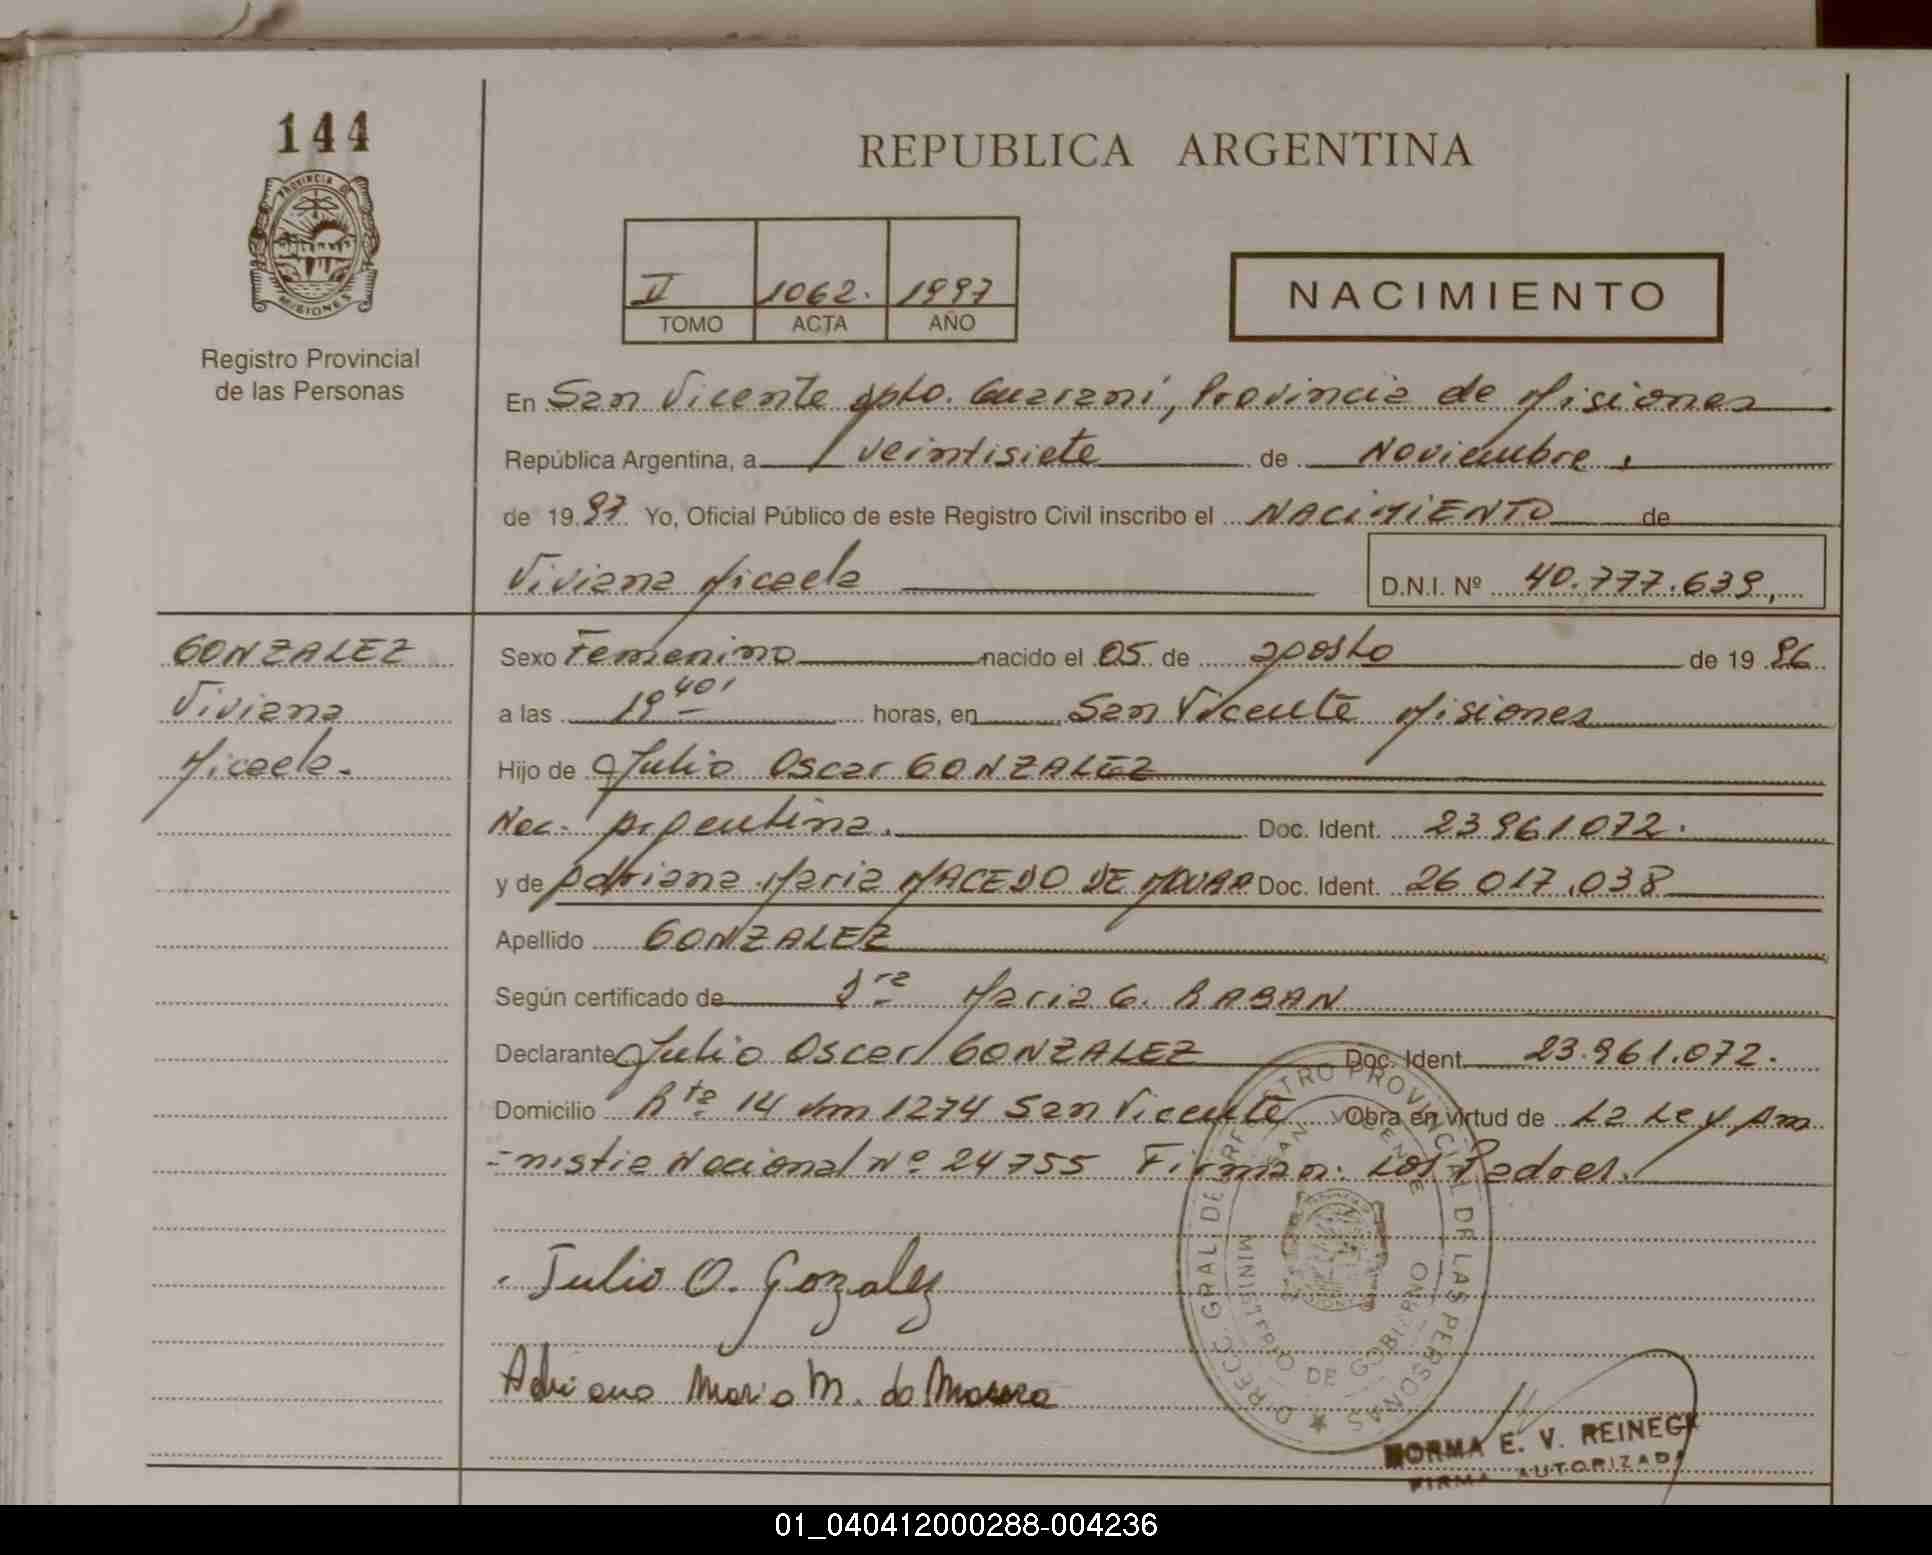 144
PROVINCIA DE
MISIONES
Registro Provincial
de las Personas
REPUBLICA ARGENTINA
II 1062. 1997
TOMO ACTA AÑO
NACIMIENTO
En San Vicente dpto. Guarani, Provincia de Misiones
República Argentina, a veintisiete de Noviembre,
de 1997 Yo, Oficial Público de este Registro Civil inscribo el NACIMIENTO de
Viviana Micaela
D.N.I. Nº 40.777.639,
GONZALEZ
Viviana
Micaela.
Sexo Femenino nacido el 05 de agosto de 1996
a las 19 40' horas, en San Vicente Misiones
Hijo de Julio Oscar GONZALEZ
Nac. Argentina. Doc. Ident. 23961072.
y de Adriana Maria MACEDO DE MOURA Doc. Ident. 26 017.038
Apellido GONZALEZ
Según certificado de Dra Maria G. RABAN
Declarante Julio Oscar GONZALEZ Doc. Ident. 23.961.072.
Domicilio Rta 14 km 1274 San Vicente Obra en virtud de La Ley Am
=nistia Nacional Nº 24755 Firman: Los Padres.
Julio O. Gozalez
Adriana Maria M. do Moura
DIRECC. GRAL. DE REGISTRO PROVINCIAL DE LAS PERSONAS
SAN VICENTE
MINISTERIO DE GOBIERNO
NORMA E. V. REINEGK
FIRMA AUTORIZADA
01_040412000288-004236